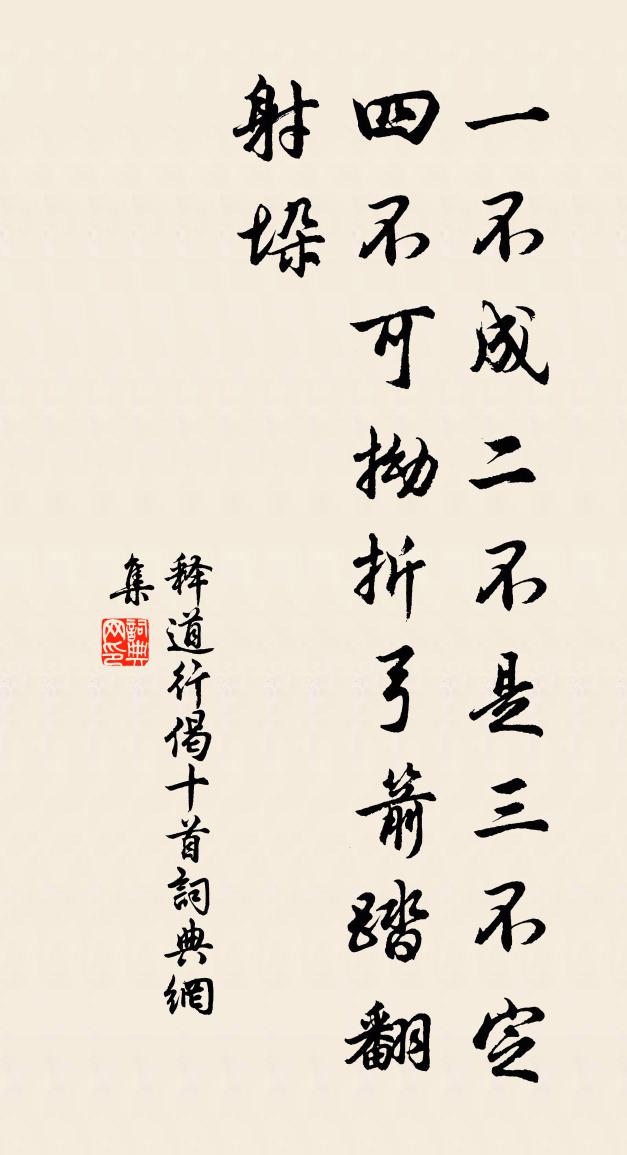 一不成二不是三不定
四不可拗折弓箭踏翻
射垛
释道行偈十首詞典網
集
詞典
网印